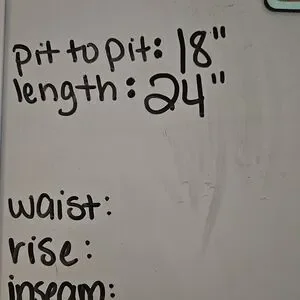 pit to pit: 18"
length: 24"
waist:
rise:
inseam: